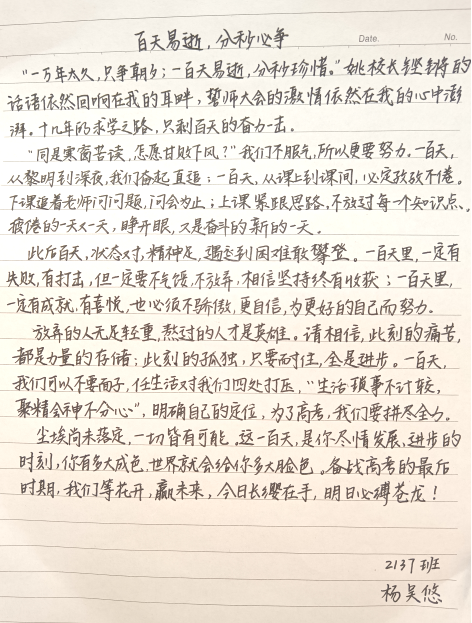 百天易逝，分秒必争
Date.
No.
"一万年太久，只争朝夕；一百天易逝，分秒珍惜。"姚校长铿锵的
话语依然回响在我的耳畔，誓师大会的激情依然在我的心中澎
湃。十几年的求学之路，只剩百天的奋力一击。
"同是寒窗苦读，怎愿甘败下风？"我们不服气，所以更要努力。一百天，
从黎明到深夜，我们奋起直追；一百天，从课上到课间，必定孜孜不倦。
下课追着老师问问题，问会为止；上课紧跟思路，不放过每一个知识点、
疲倦的一天又一天，睁开眼，又是奋斗的新的一天。
此后百天，状态对，精神足，遇到困难敢攀登。一百天里，一定有
失败，有打击，但一定要不气馁，不放弃，相信坚持终有收获；一百天里，
一定有成就，有喜悦，也必须不骄傲，更自信，为更好的自己而努力。
放弃的人无足轻重，熬过的人才是英雄。请相信，此刻的痛苦，
都是力量的存储；此刻的孤独，只要耐住，全是进步。一百天，
我们可以不要面子，任生活对我们四处打压，"生活琐事不计较，
聚精会神不分心"，明确自己的定位，为了高考，我们要拼尽全力。
尘埃尚未落定，一切皆有可能。这一百天，是你尽情发展、进步的
时刻，你有多大成色，世界就会给你多大脸色。备战高考的最后
时期，我们等花开，赢未来，今日长缨在手，明日必缚苍龙！
2137班
杨吴悠